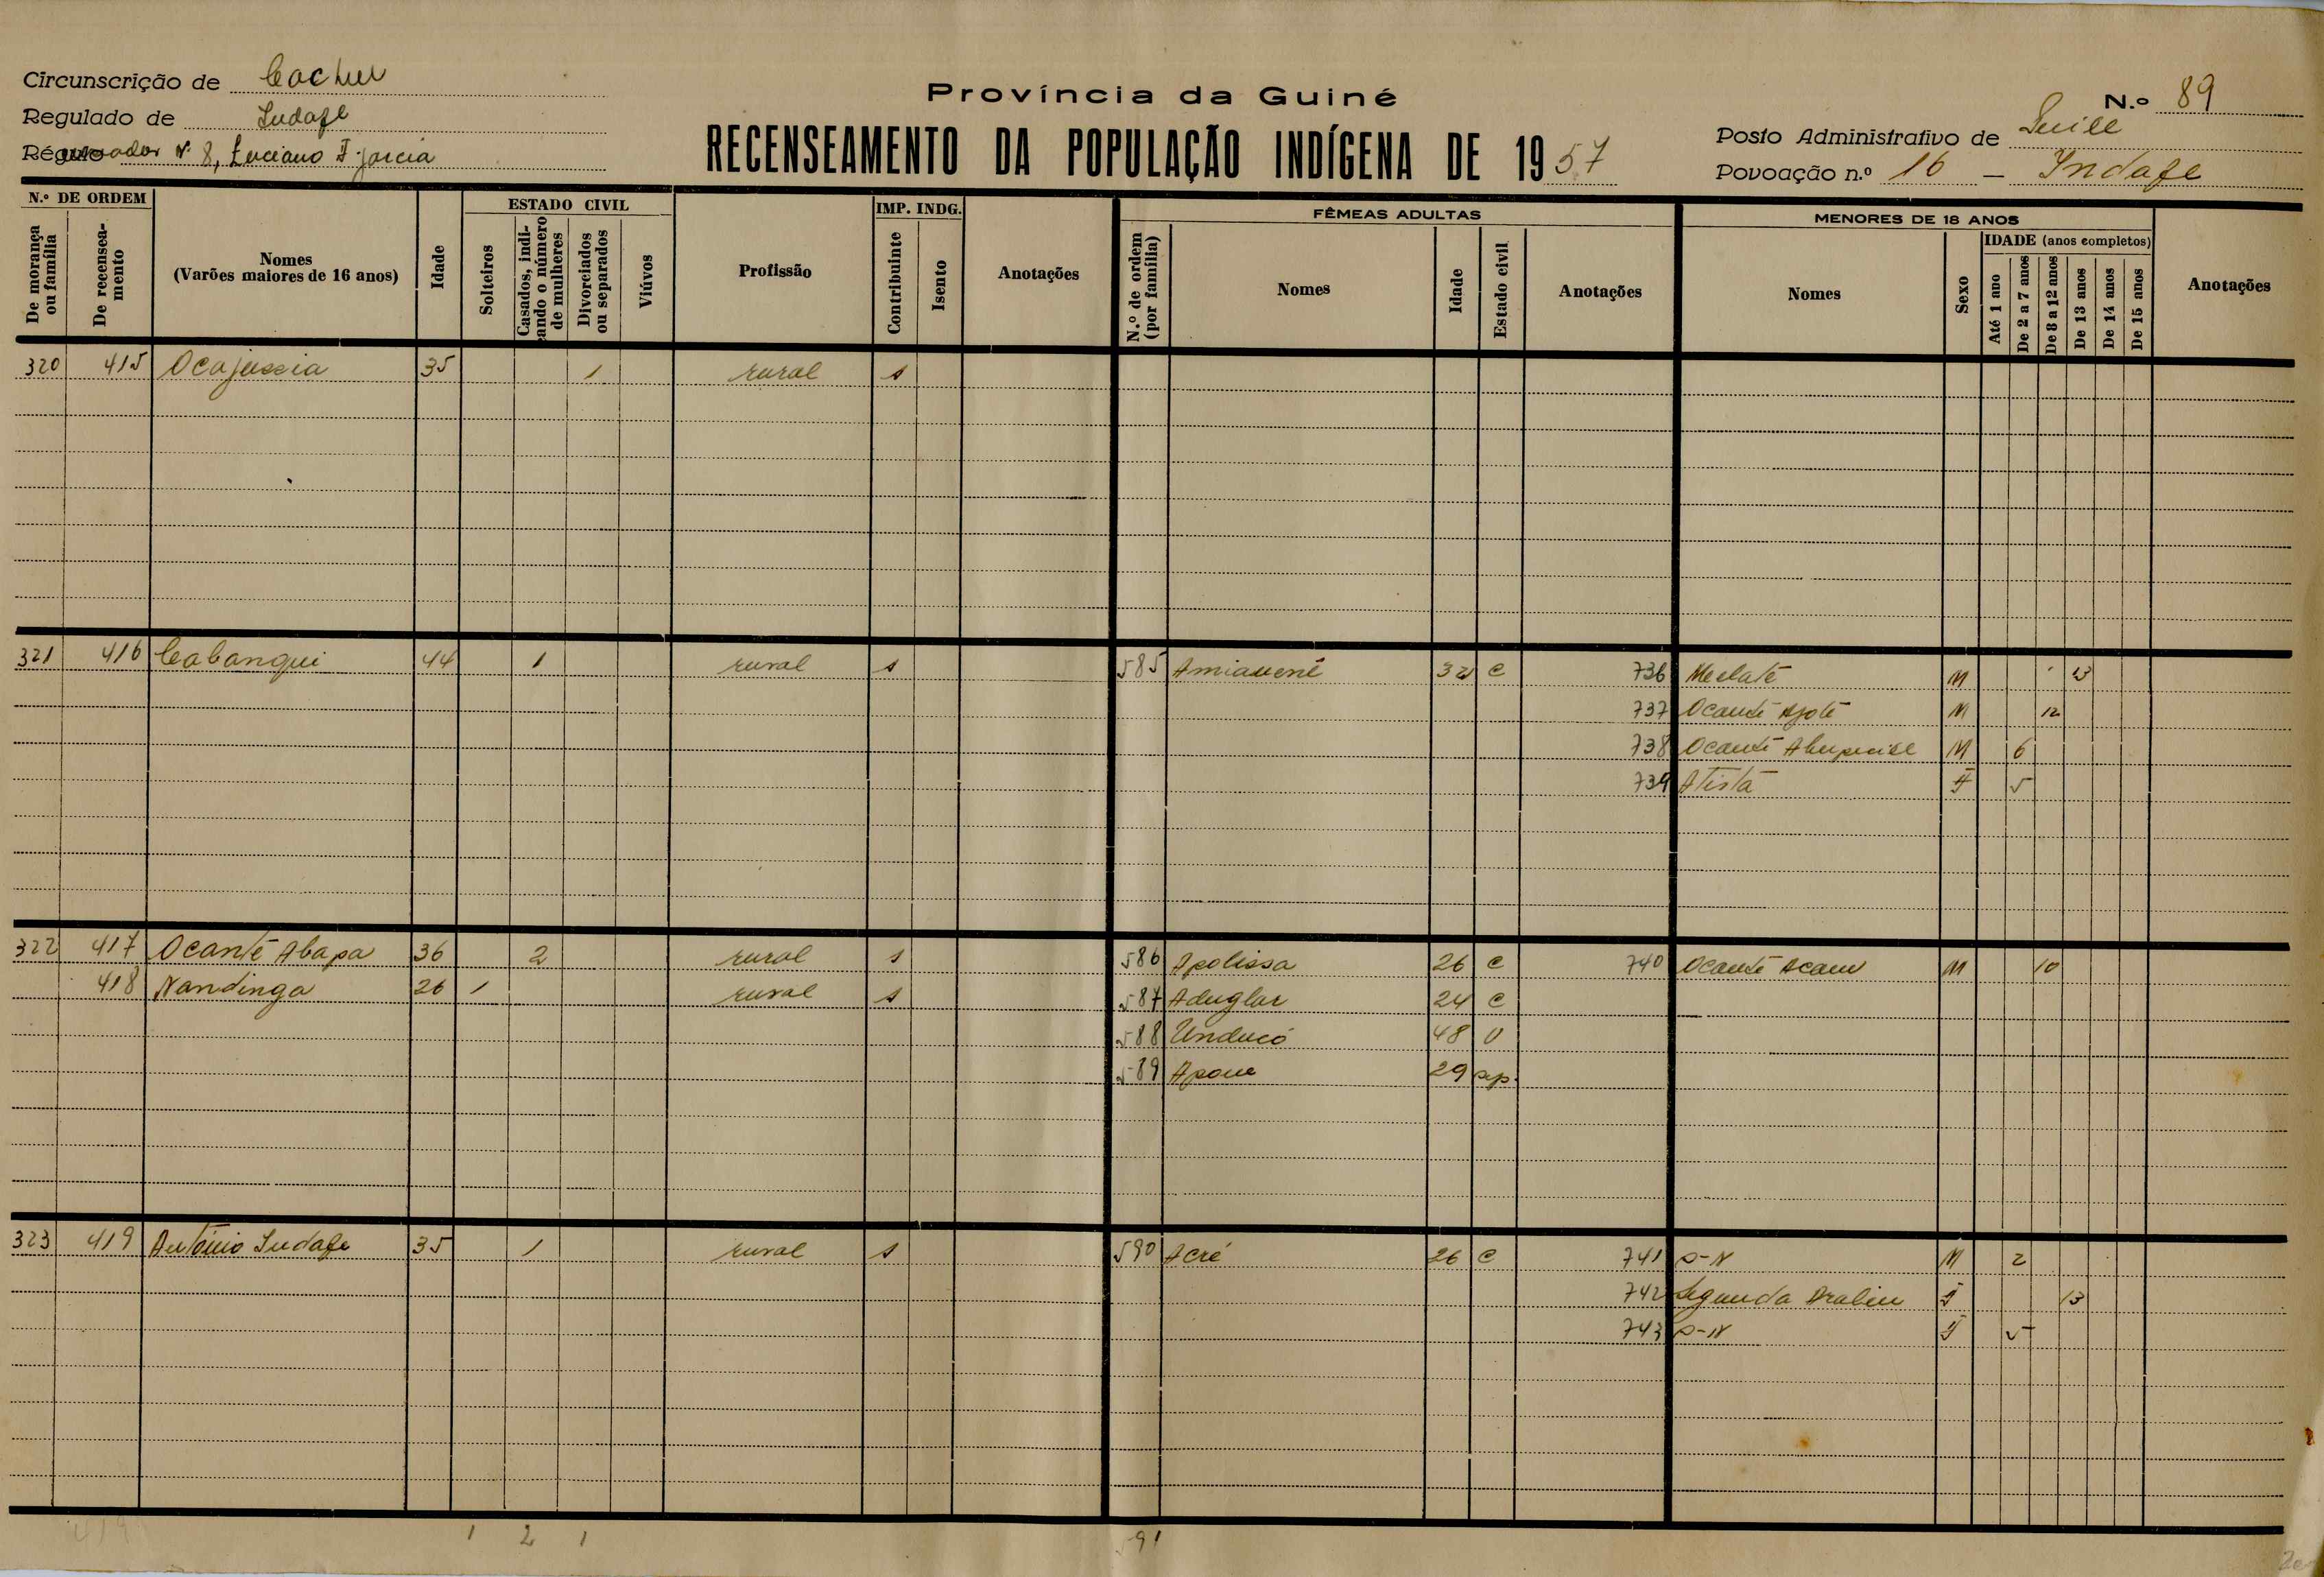 Circunscrição de Cacheu
Regulado de Indafe
Régulo N.º 8, Luciano F. Garcia
Província da Guiné
RECENSEAMENTO DA POPULAÇÃO INDÍGENA DE 1957
N.º 89
Posto Administrativo de
Povoação n.º 16 — Indafe
N.º DE ORDEM
De morança ou família
De recensea-mento
Nomes (Varões maiores de 16 anos)
Idade
ESTADO CIVIL
Solteiros
Casados, indi-cando o número de mulheres
Divorciados ou separados
Viúvos
Profissão
IMP. INDG.
Contribuinte
Isento
Anotações
FÊMEAS ADULTAS
N.º de ordem (por família)
Nomes
Idade
Estado civil
Anotações
MENORES DE 18 ANOS
Nomes
Sexo
IDADE (anos completos)
Até 1 ano
De 2 a 7 anos
De 8 a 12 anos
De 13 anos
De 14 anos
De 15 anos
Anotações
320 415 Ocajussia 35 1 rural s
321 416 Cabangui 44 1 rural s 585 Amiauenê 32 C 736 M 13
737 Ocanté Ajotê M 12
738 Ocanté M 6
739 Atistá F 5
322 417 Ocanté Abapa 36 2 rural s 586 Apolissa 26 C 740 Ocanté Acam M 10
418 Nandinga 26 1 rural s 587 Aduglar 24 C
588 Unducó 48 V
589 Apoue 29 sep.
323 419 António Indafe 35 1 rural s 590 Acré 26 C 741 S-N M 2
742 Segunda F 13
743 S-N F 5
419 1 2 1 591